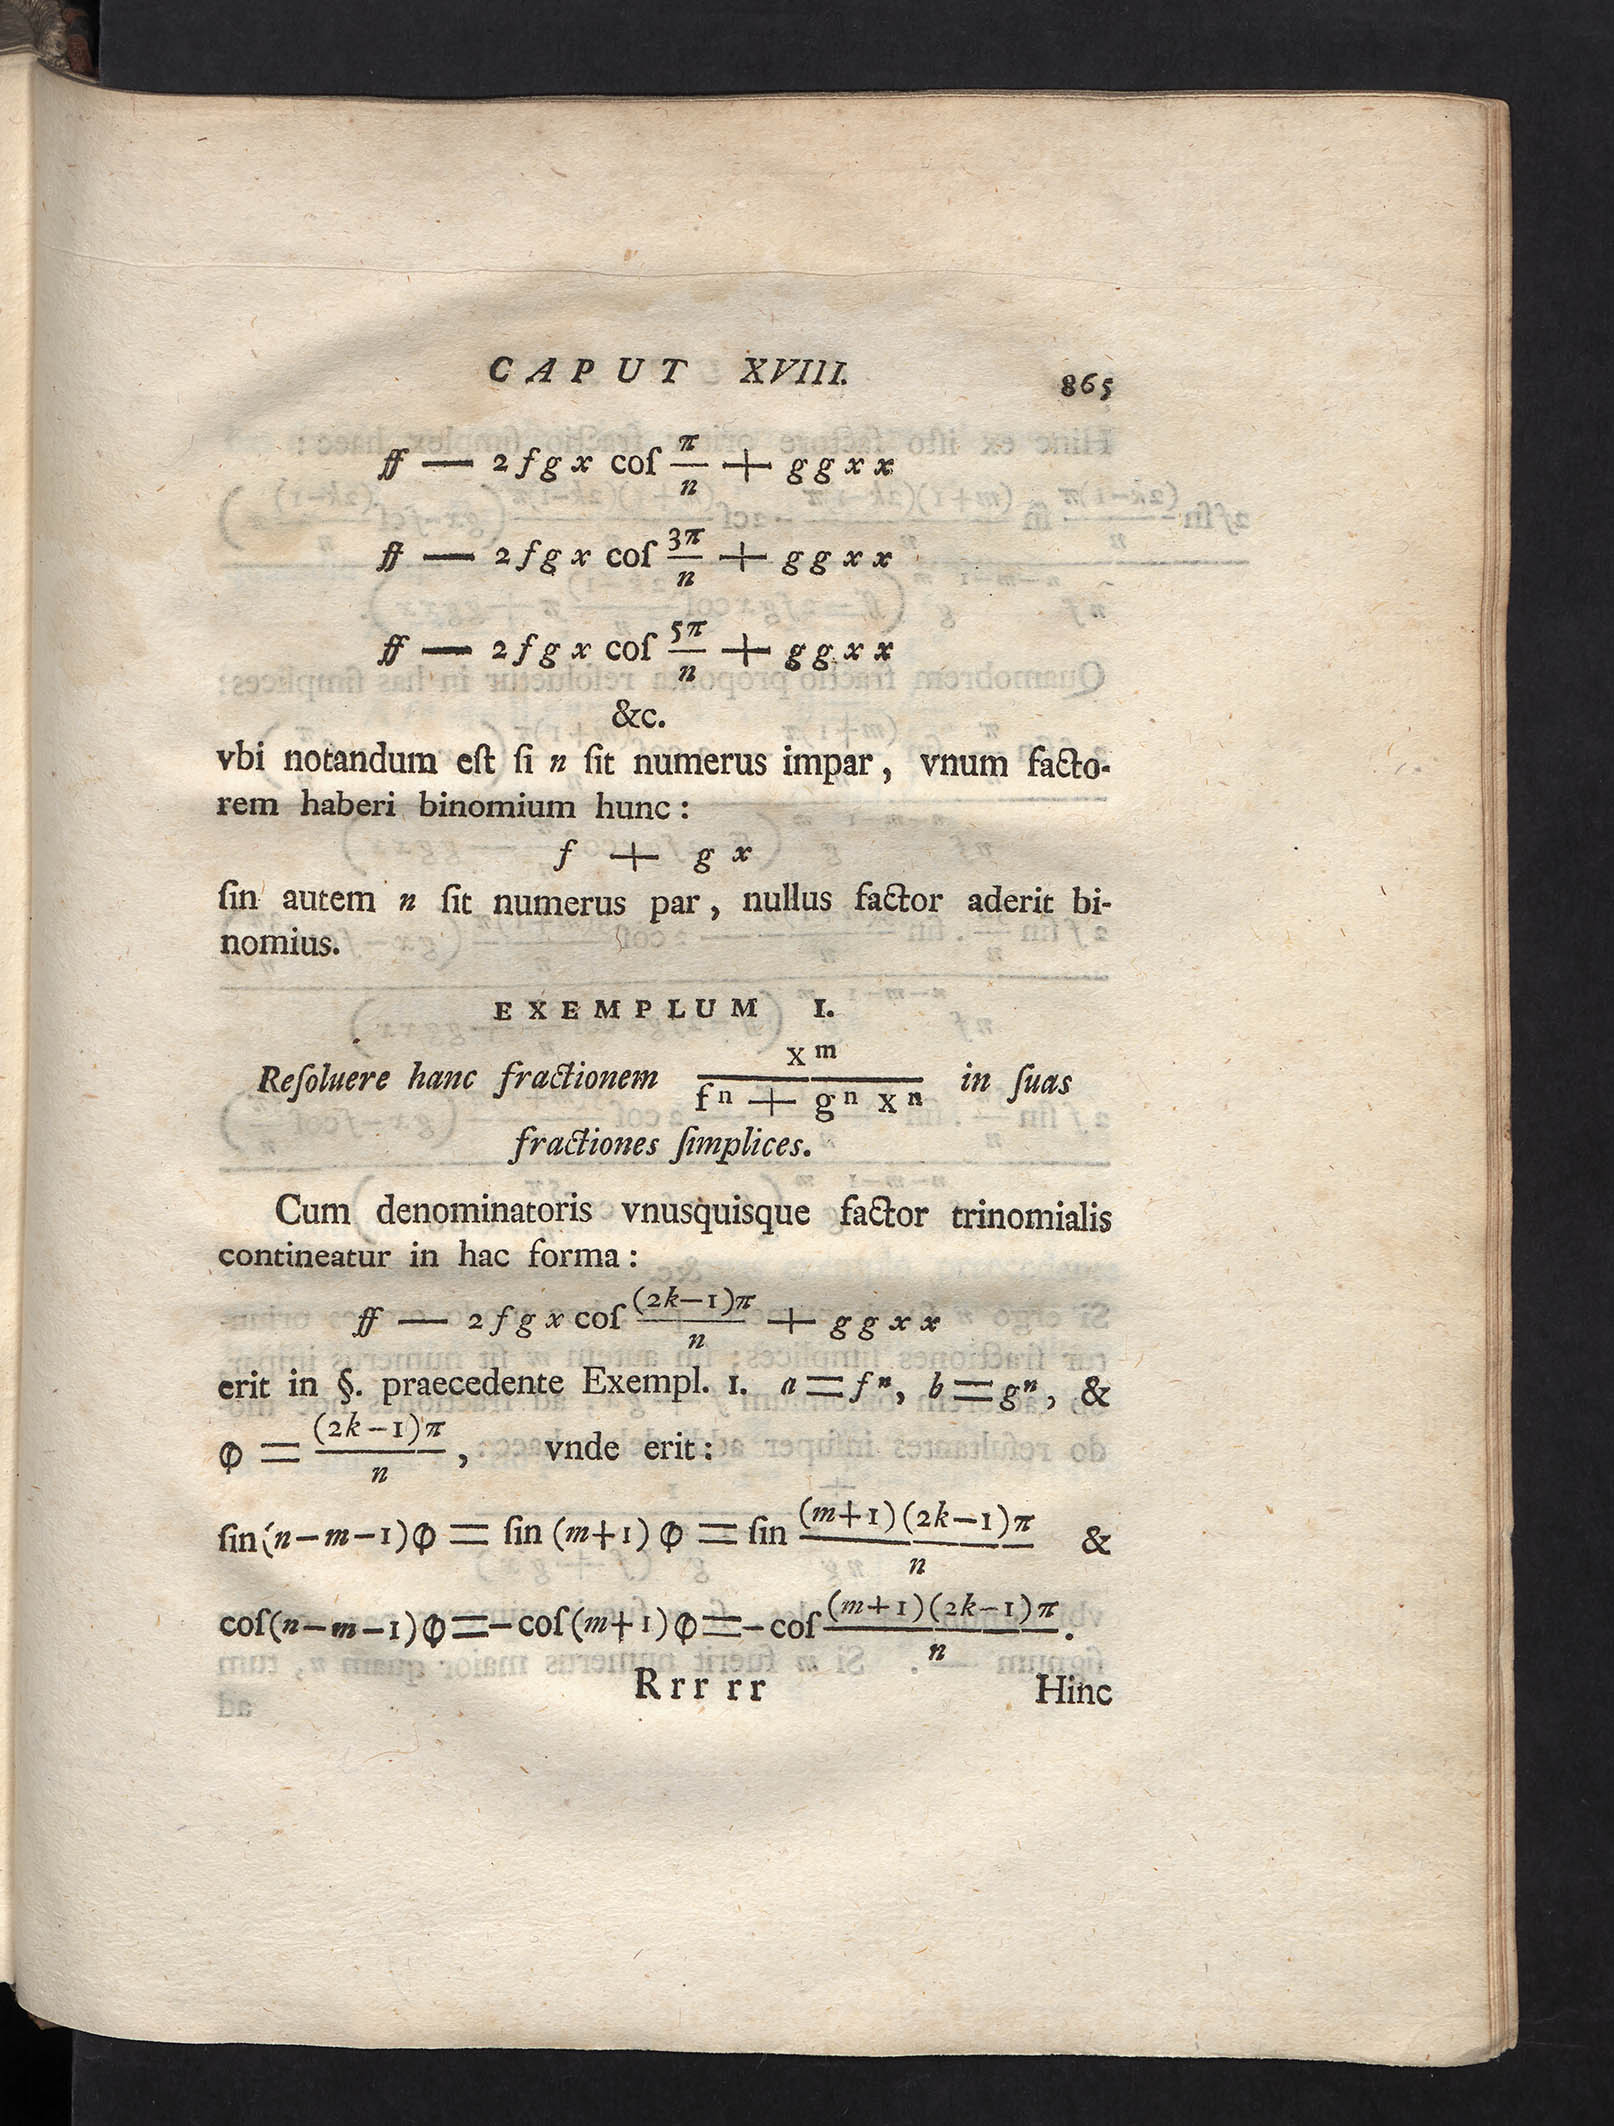 CAPUT XVIII. 865
ff — 2fgx coſ π/n + ggxx
ff — 2fgx coſ 3π/n + ggxx
ff — 2fgx coſ 5π/n + ggxx
&c.
vbi notandum eſt ſi n ſit numerus impar, vnum facto-
rem haberi binomium hunc:
f + gx
ſin autem n ſit numerus par, nullus factor aderit bi-
nomius.
EXEMPLUM I.
Reſoluere hanc fractionem x^m/(f^n + g^n x^n) in ſuas
fractiones ſimplices.
Cum denominatoris vnusquisque factor trinomialis
contineatur in hac forma:
ff — 2fgx coſ (2k−1)π/n + ggxx
erit in §. praecedente Exempl. 1. a = f^n, b = g^n, &
φ = (2k−1)π/n, vnde erit:
ſin(n−m−1)φ = ſin(m+1)φ = ſin (m+1)(2k−1)π/n &
coſ(n−m−1)φ = −coſ(m+1)φ = −coſ (m+1)(2k−1)π/n.
Rrr rr Hinc